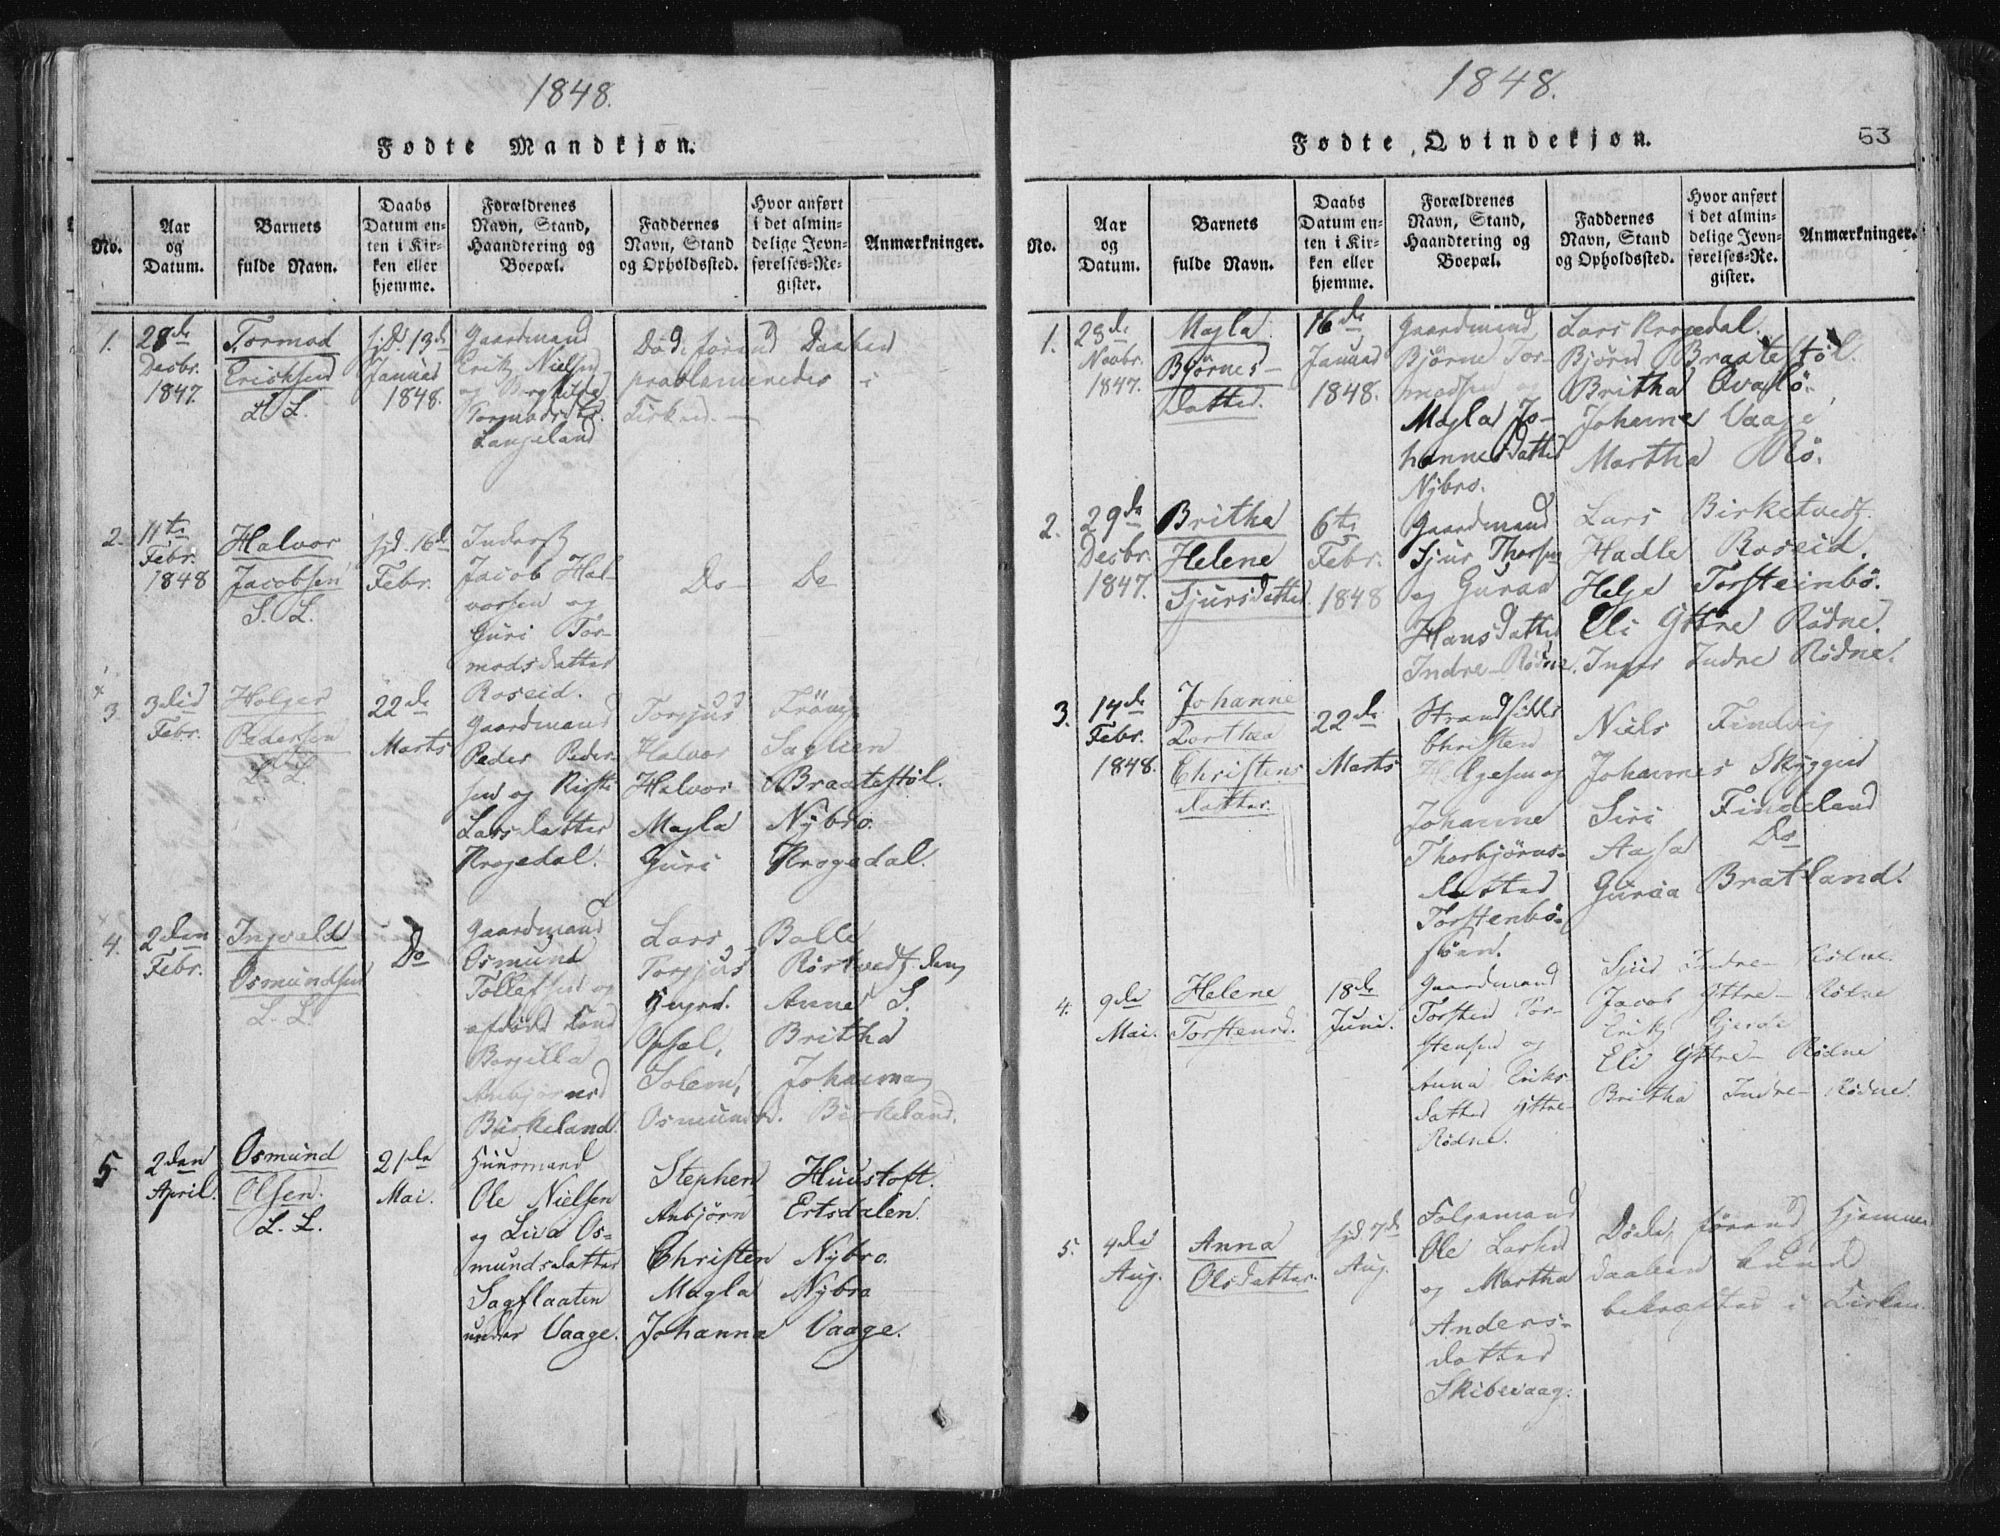 1848.
Fødte Mandkjøn.
No.
Aar
og
Datum.
Barnets
fulde Navn.
Daabs
Datum en-
ten i Kir-
ken eller
hjemme.
Forældrenes
Navn, Stand,
Haandtering og
Boepæl.
Faddernes
Navn, Stand
og Opholdssted.
Hvor anført
i det almin-
delige Jevn-
førelses-Re-
gister.
Anmærkninger.
1.
28de
Decbr.
1847.
Tormod
Erichsen
L. L.
hjd. 13de
Januar
1848.
Gaardmand
Erik Nielsen
og
Tormodsd.
Langeland
Død, førend Daaben
proklameredes i
Kirken. —
2.
11te
Febr.
1848
Halvor
Jacobsen
S. L.
hjd. 16de
Febr.
Inderst
Jacob Hal-
vorsen og
Guri Tor-
modsdatter
Roseid.
Do — Do
3
3die
Febr.
Holger
Pedersen
L. L.
22de
Marts
Gaardmand
Peder Peder-
sen og Kirsti
Larsdatter
Krogedal.
Torgjus
Halvor
Halvor Braatestøl.
Magla Nybro.
Guri Krogedal.
4.
2den
Febr.
Ingvald
Osmundsen
L. L.
Do
Gaardmand
Osmund
Tollefsen og
afdøde Kone
Borgilla
Anbjørnsd
Birkeland.
Lars Balle
Torgjus Rørtvedt, den
Anne S.
Opsal, Britha
Solem, Johanna
Osmundsd. Birkeland.
5
2den
April.
Osmund
Olsen.
L. L.
21de
Mai.
Huusmand
Ole Nielsen
og Liva Os-
mundsdatter
Sagflaaten
under Vaage.
Stephen Huustoft.
Anbjørn Ertsdalen.
Christen Nybro.
Magla Nybro
Johanna Vaage.
1848.
53
Fødte Qvindekjøn.
No.
Aar
og
Datum.
Barnets
fulde Navn.
Daabs
Datum en-
ten i Kir-
ken eller
hjemme.
Forældrenes
Navn, Stand,
Haandtering og
Boepæl.
Faddernes
Navn, Stand
og Opholdssted.
Hvor anført
i det almin-
delige Jevn-
førelses-Re-
gister.
Anmærkninger.
1.
28de
Novbr.
1847.
Magla
Bjørnes-
datter.
16de
Januar
1848.
Gaardmand
Bjørne Tor-
modsen og
Magla Jo-
hannesdatter
Nybro.
Lars Krogedal.
Bjørn Braatestøl.
Britha Qvalø.
Johanne Vaage
Martha Rø.
2.
29de
Decbr.
1847.
Britha
Helene
Sjursdatter
6te
Febr.
1848
Gaardmand
Sjur Thorsen
og Guraa
Hansdatter
Indre-Rødne.
Lars Birketvedt.
Hadle Roseid.
Helge Torsteinbø.
Eli Yttre Rødne.
Inger Indre Rødne.
3.
14de
Febr.
1848.
Johanne
Dorthea
Christens
datter.
22de
Marts
Strandsidder
Christen
Helgesen og
Johanne
Thorbjørns-
datter
Torstenbø-
søen.
Niels Findvig
Johannes
Siri Findeland
Aasa Do
Guraa Bratland.
4.
9de
Mai.
Helene
Torstensd.
18de
Juni.
Gaardmand
Torsten Tor-
stensen og
Anna Eriks-
datter Yttre-
Rødne.
Sjur Indre- Rødne.
Jacob Yttre- Rødne
Erik Gjerde
Eli Yttre- Rødne
Britha Indre- Rødne.
5.
4de
Aug.
Anna
Olsdatter.
hjd. 7de
Aug.
Folgemand
Ole Larsen
og Martha
Anders-
datter
Skibevaag.
Døde, førend Hjemme
daaben kunde
bekræftes i Kirken.